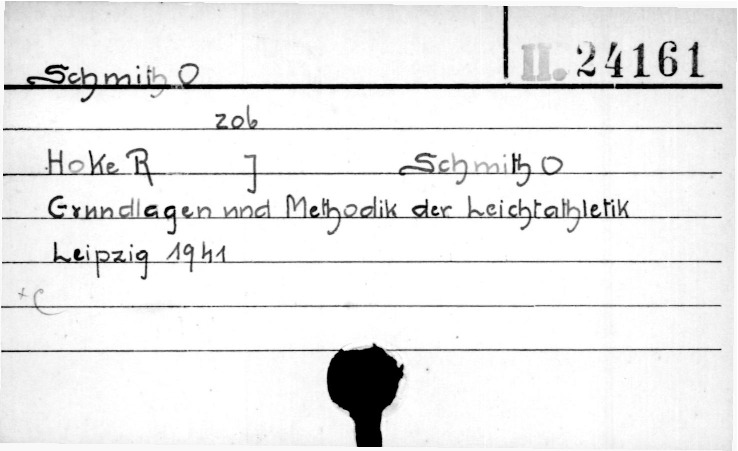 Schmith O
II. 24161
zob
Hoke R ] Schmith O
Grundlagen und Methodik der Leichtathletik
Leipzig 1941
+C